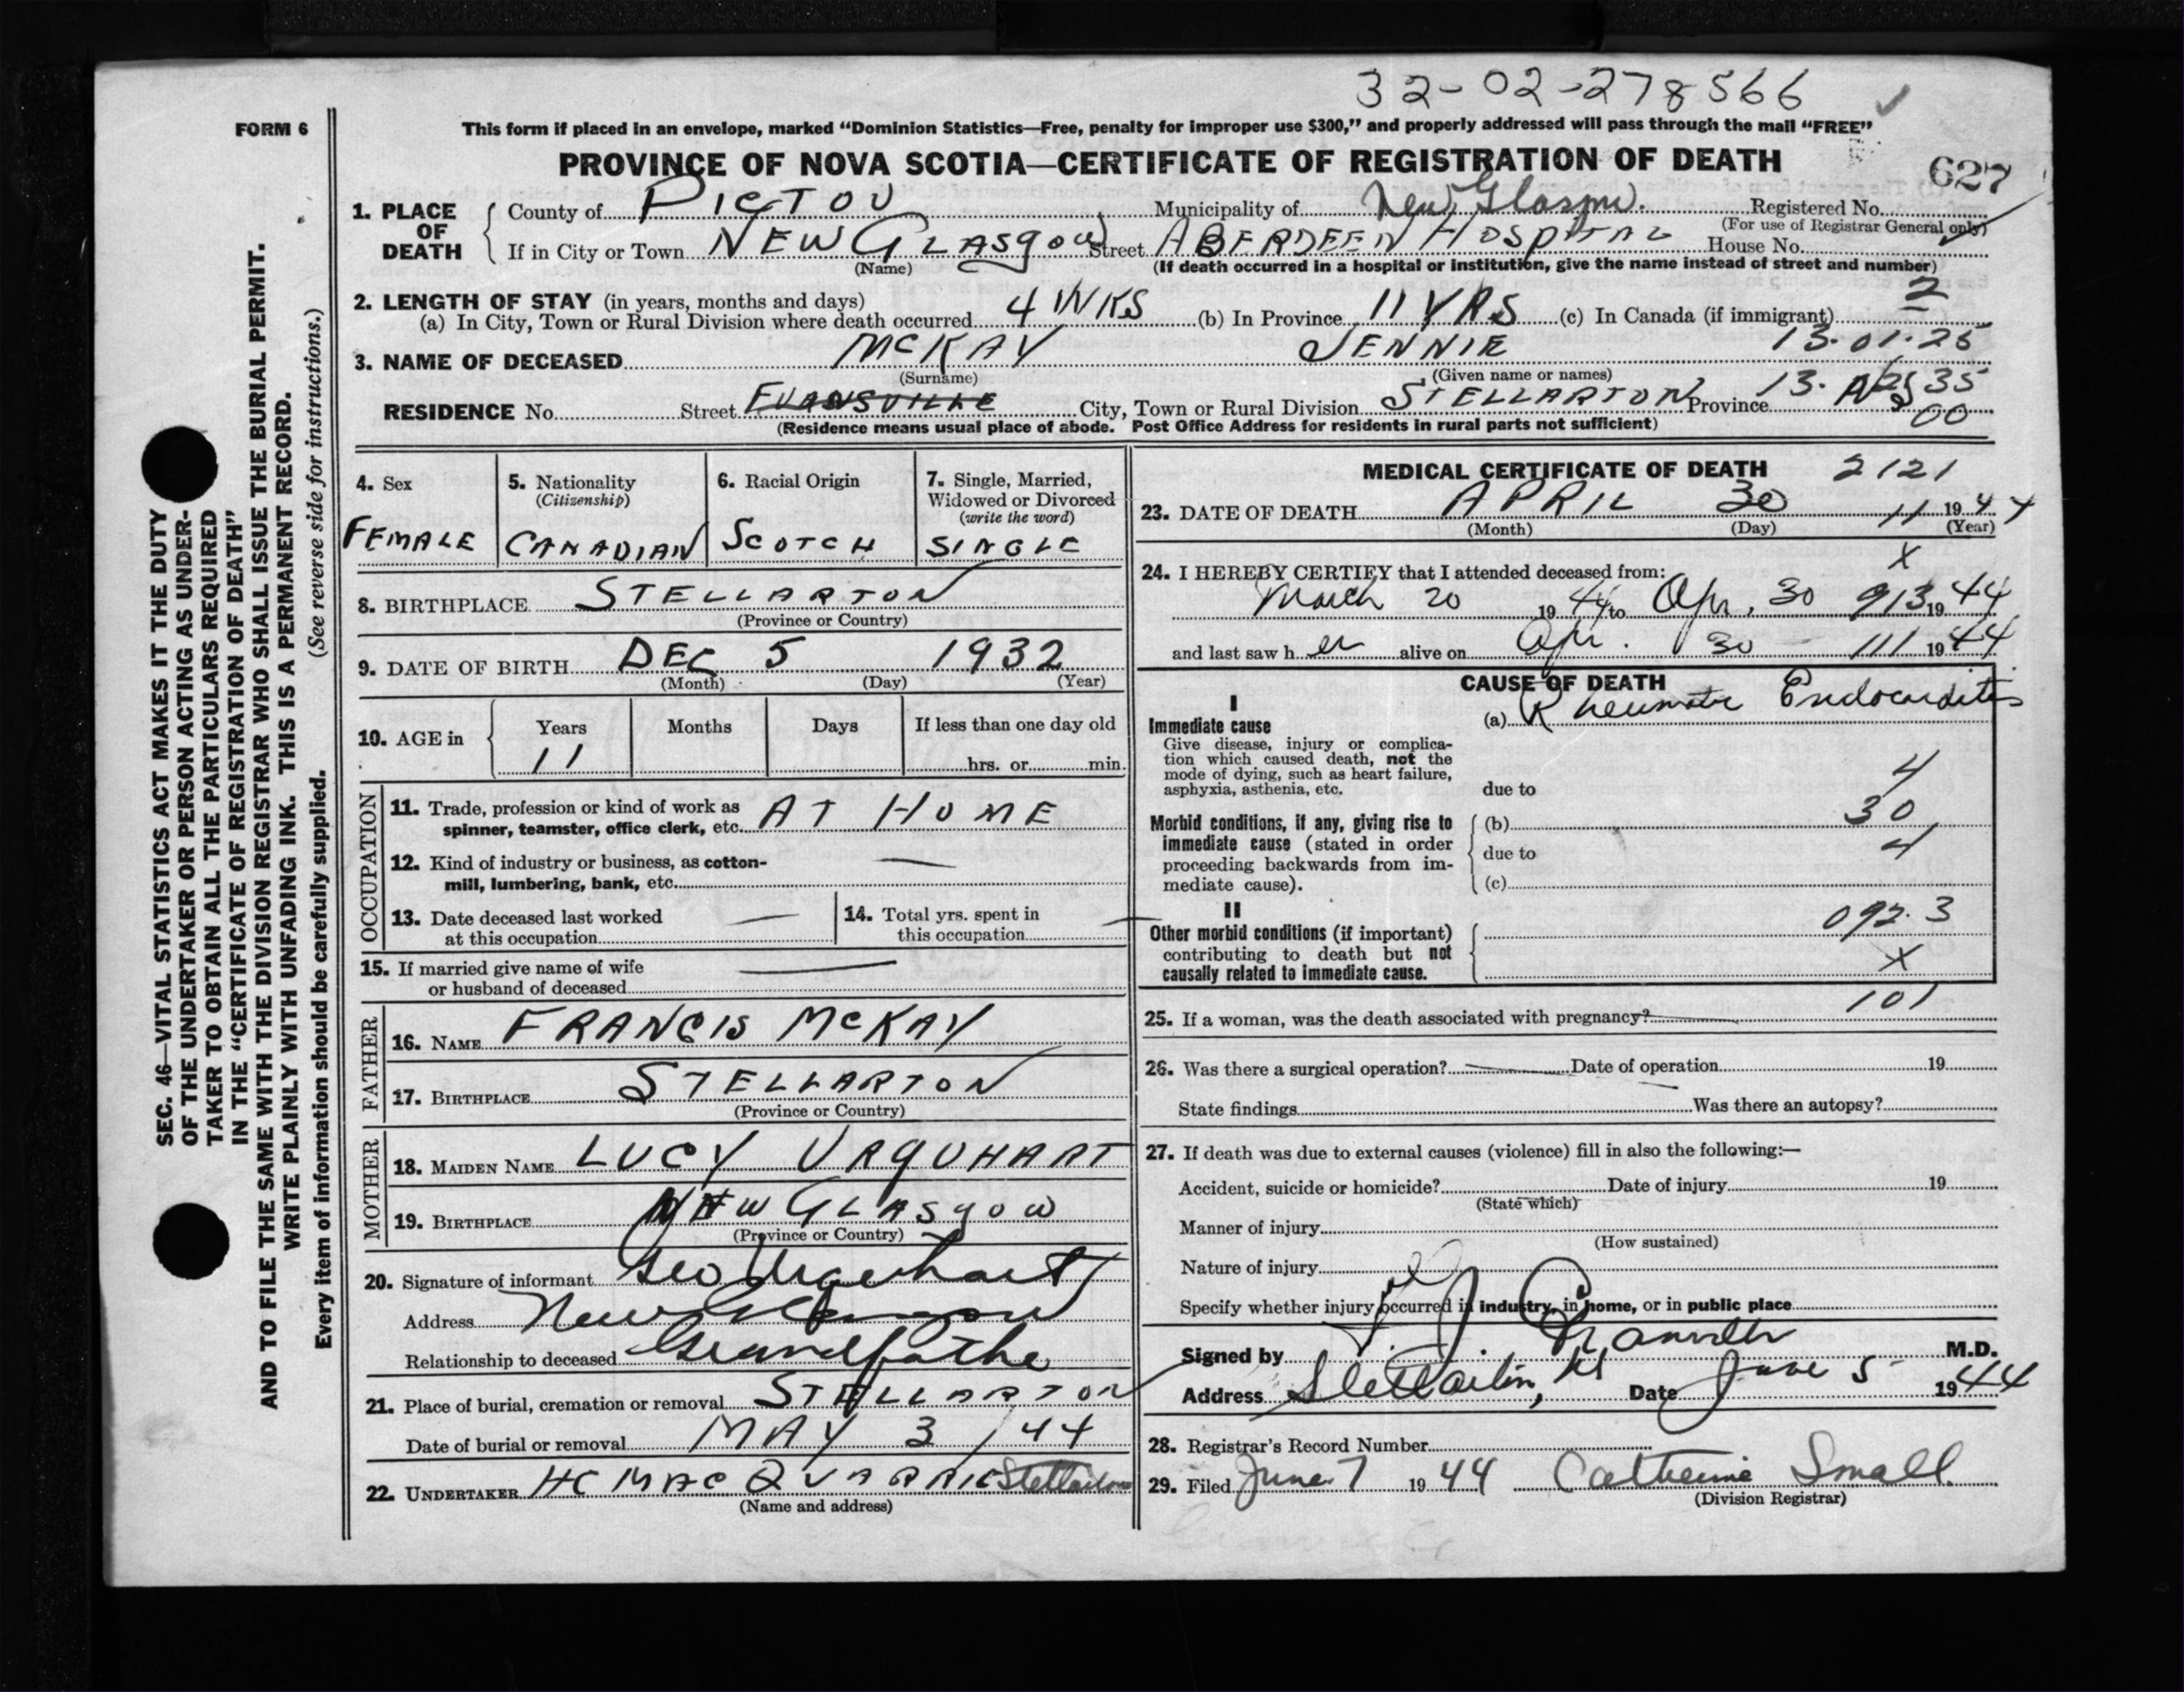 32-02-278566
FORM 6
This form if placed in an envelope, marked “Dominion Statistics—Free, penalty for improper use $300,” and properly addressed will pass through the mail “FREE”
PROVINCE OF NOVA SCOTIA—CERTIFICATE OF REGISTRATION OF DEATH
627
1. PLACE OF DEATH
County of PICTOU Municipality of New Glasgow. Registered No.
(For use of Registrar General only)
If in City or Town NEW GLASGOW Street ABERDEEN HOSPITAL House No.
(Name) (If death occurred in a hospital or institution, give the name instead of street and number)
2. LENGTH OF STAY (in years, months and days) 2
(a) In City, Town or Rural Division where death occurred 4 WKS (b) In Province 11 YRS (c) In Canada (if immigrant)
3. NAME OF DECEASED MCKAY JENNIE 13.01.25
(Surname) (Given name or names)
RESIDENCE No. Street EVANSVILLE City, Town or Rural Division STELLARTON Province 13. NS 35
00
(Residence means usual place of abode. Post Office Address for residents in rural parts not sufficient)
4. Sex
FEMALE
5. Nationality
(Citizenship)
CANADIAN
6. Racial Origin
SCOTCH
7. Single, Married,
Widowed or Divorced
(write the word)
SINGLE
8. BIRTHPLACE STELLARTON
(Province or Country)
9. DATE OF BIRTH DEC 5 1932
(Month) (Day) (Year)
10. AGE in Years Months Days If less than one day old
11 hrs. or min.
OCCUPATION
11. Trade, profession or kind of work as
spinner, teamster, office clerk, etc. AT HOME
12. Kind of industry or business, as cotton-
mill, lumbering, bank, etc. —
13. Date deceased last worked
at this occupation —
14. Total yrs. spent in
this occupation —
15. If married give name of wife
or husband of deceased —
FATHER
16. NAME FRANCIS MCKAY
17. BIRTHPLACE STELLARTON
(Province or Country)
MOTHER
18. MAIDEN NAME LUCY URQUHART
19. BIRTHPLACE NEW GLASGOW
(Province or Country)
20. Signature of informant Geo Urquhart
Address New Glasgow
Relationship to deceased Grandfathe
21. Place of burial, cremation or removal STELLARTON
Date of burial or removal MAY 3 / 44
22. UNDERTAKER HC MACQUARRIE Stellarton
(Name and address)
MEDICAL CERTIFICATE OF DEATH 2121
23. DATE OF DEATH APRIL 30 11 1944
(Month) (Day) (Year)
X
24. I HEREBY CERTIFY that I attended deceased from:
March 20 1944 to Apr. 30 913 1944
and last saw her alive on Apr. 30 111 1944
CAUSE OF DEATH
I
Immediate cause
(a) Rheumatic Endocarditis
Give disease, injury or complica-
tion which caused death, not the
mode of dying, such as heart failure,
asphyxia, asthenia, etc.
due to 4
Morbid conditions, if any, giving rise to
immediate cause (stated in order
proceeding backwards from im-
mediate cause).
(b) 30
due to 4
(c)
II
Other morbid conditions (if important)
contributing to death but not
causally related to immediate cause.
092.3
X
101
25. If a woman, was the death associated with pregnancy? —
26. Was there a surgical operation? — Date of operation 19
State findings Was there an autopsy?
27. If death was due to external causes (violence) fill in also the following:—
Accident, suicide or homicide? Date of injury 19
(State which)
Manner of injury
(How sustained)
Nature of injury
Specify whether injury occurred in industry, in home, or in public place
Signed by M.D.
Address Stellarton, NS Date June 5 1944
28. Registrar's Record Number
29. Filed June 7 1944 Catherine Small
(Division Registrar)
SEC. 46—VITAL STATISTICS ACT MAKES IT THE DUTY
OF THE UNDERTAKER OR PERSON ACTING AS UNDER-
TAKER TO OBTAIN ALL THE PARTICULARS REQUIRED
IN THE “CERTIFICATE OF REGISTRATION OF DEATH”
AND TO FILE THE SAME WITH THE DIVISION REGISTRAR WHO SHALL ISSUE THE BURIAL PERMIT.
WRITE PLAINLY WITH UNFADING INK. THIS IS A PERMANENT RECORD.
Every item of information should be carefully supplied. (See reverse side for instructions.)